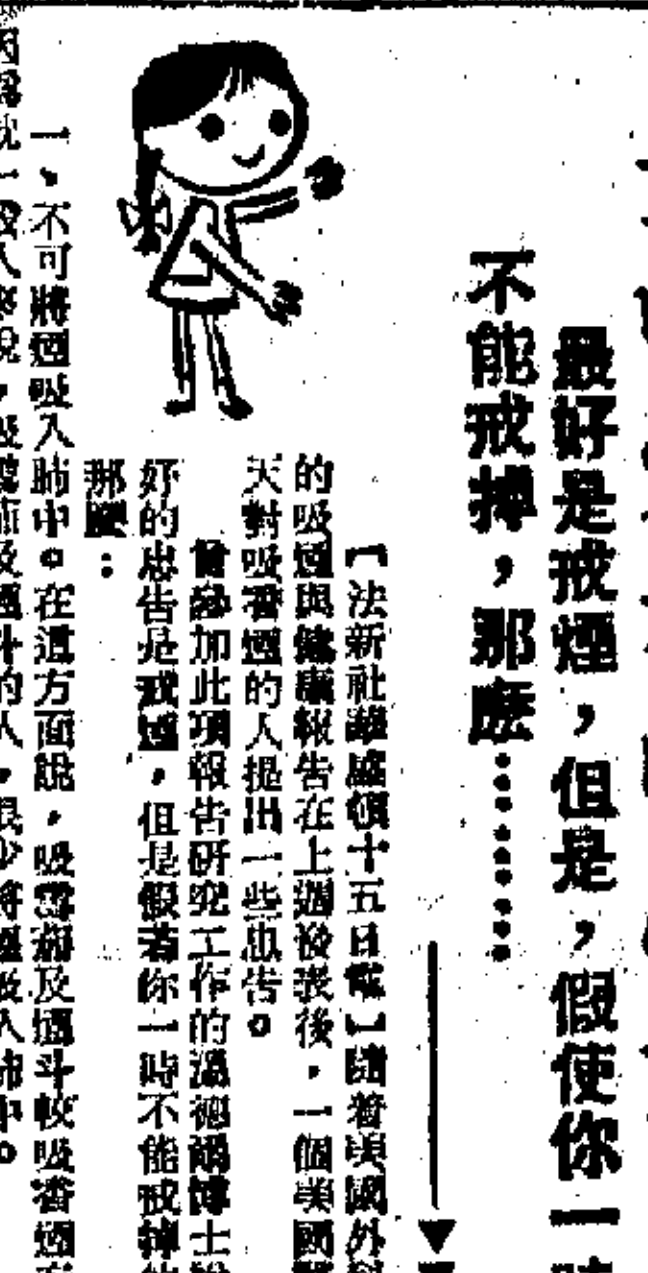 最好是戒煙，但是，假使你一時
不能戒掉，那麽………
【法新社華盛頓十五日電】隨着美國外科
的吸煙與健康報告在上週發表後，一個美國醫
天對吸香煙的人提出一些忠告。
曾參加此項報告研究工作的溫德爾博士說
好的忠告是戒煙，但是假若你一時不能戒掉的
那麼：
一、不可將煙吸入肺中。在這方面說，吸雪茄及煙斗較吸香煙
因為就一般人來說，吸雪茄及煙斗的人，很少將煙吸入肺中。